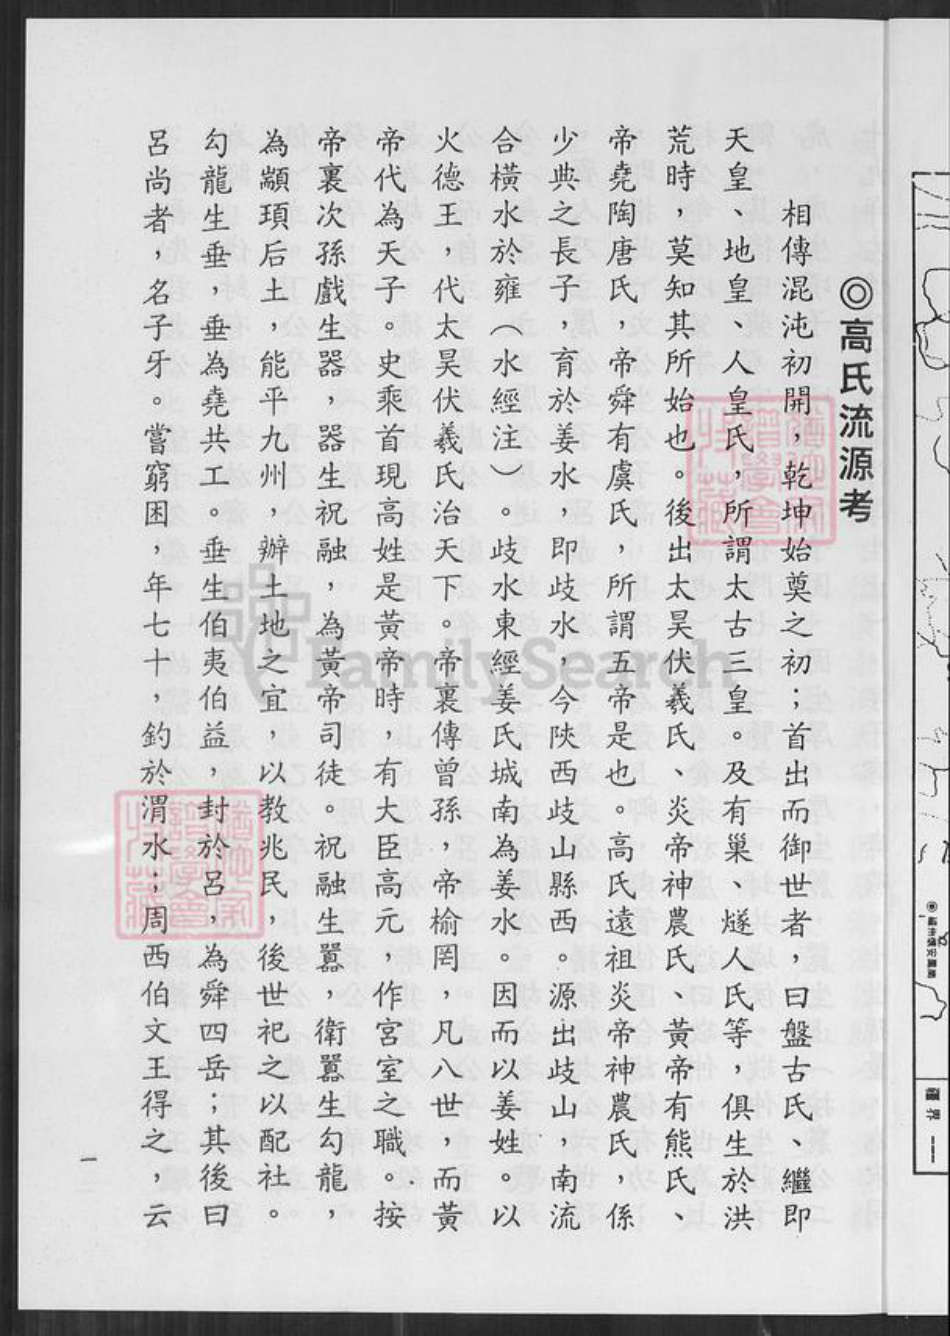 ◎高氏流源考
相傳混沌初開，乾坤始奠之初；首出而御世者，曰盤古氏、繼即
天皇、地皇、人皇氏，所謂太古三皇。及有巢、燧人氏等，俱生於洪
荒時，莫知其所始也。後出太昊伏羲氏、炎帝神農氏、黃帝有熊氏、
帝堯陶唐氏，帝舜有虞氏，所謂五帝是也。高氏遠祖炎帝神農氏，係
少典之長子，育於姜水，即歧水，今陝西歧山縣西。源出歧山，南流
合橫水於雍（水經注）。歧水東經姜氏城南為姜水。因而以姜姓。以
火德王，代太昊伏羲氏治天下。帝裏傳曾孫，帝榆罔，凡八世，而黃
帝代為天子。史乘首現高姓是黃帝時，有大臣高元，作宮室之職。按
帝裏次孫戲生器，器生祝融，為黃帝司徒。祝融生囂，衛囂生勾龍，
為顓頊后土，能平九州，辦土地之宜，以教兆民，後世祀之以配社。
勾龍生垂，垂為堯共工。垂生伯夷伯益，封於呂，為舜四岳；其後曰
呂尚者，名子牙。嘗窮困，年七十，釣於渭水，周西伯文王得之，云
一
FamilySearch
疆界